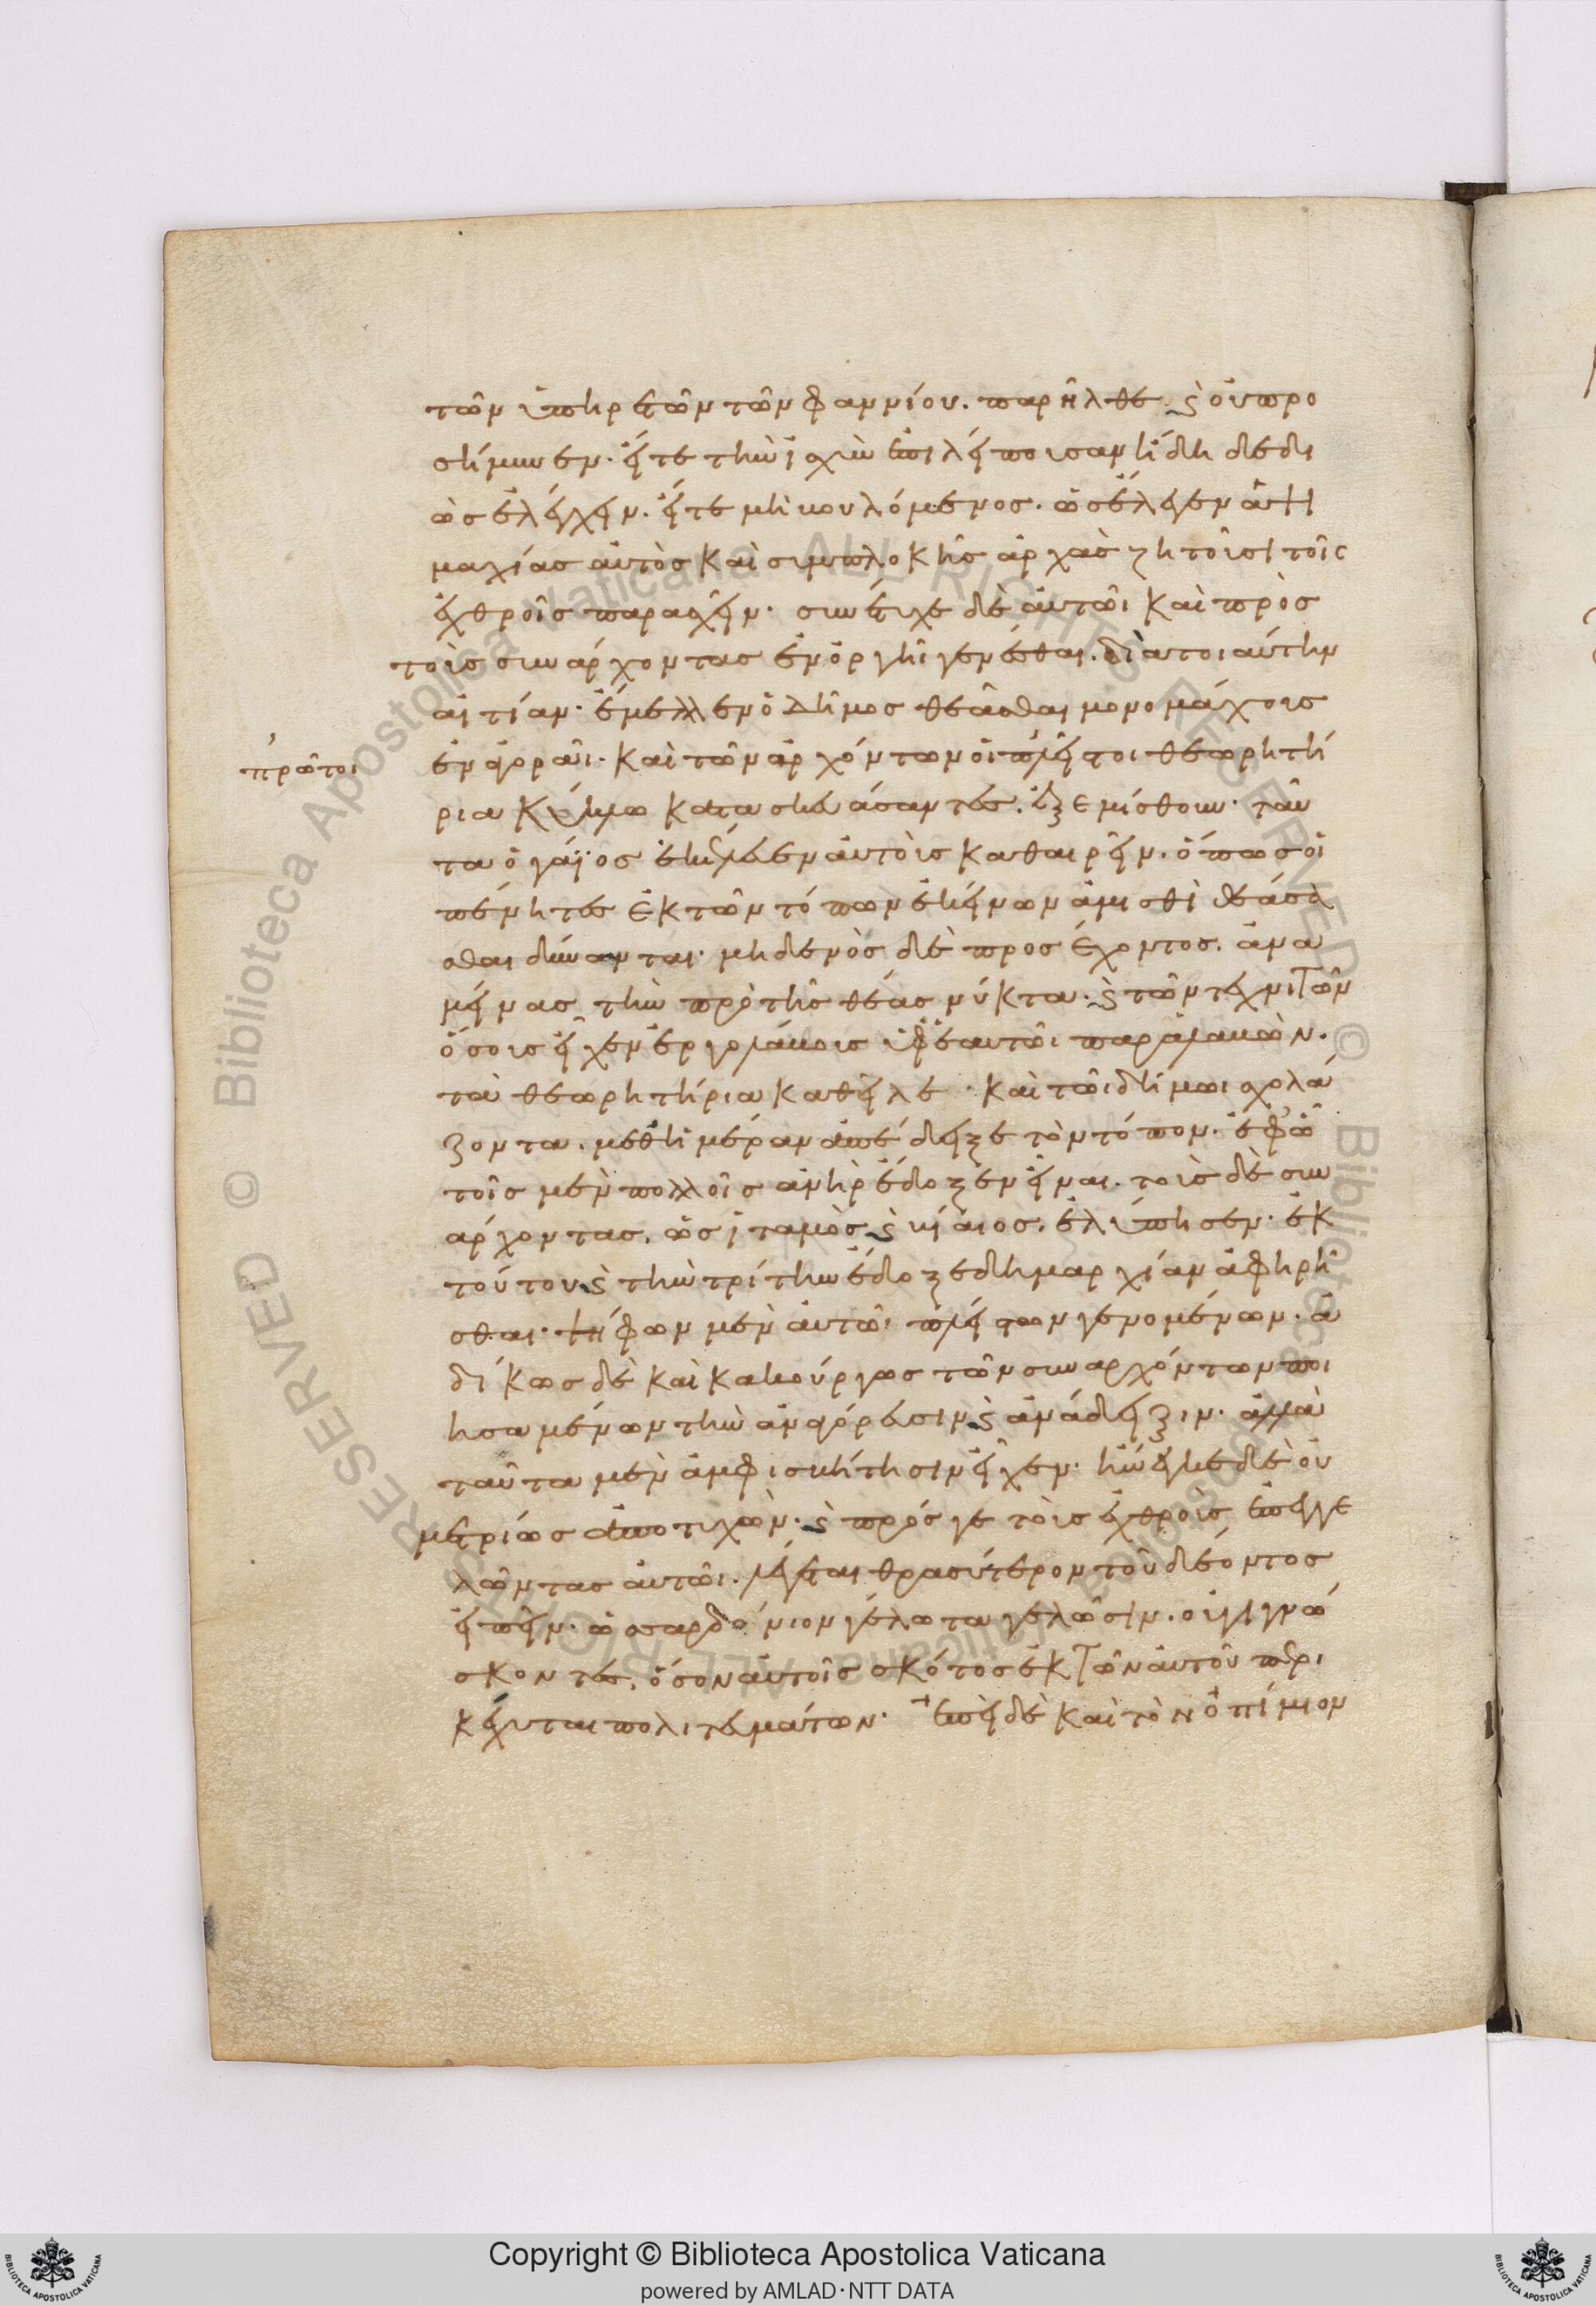 τῶν ὑπηρετῶν τῶν φαννίου. παρῆλθε. ϗ οὐ προ
σήμυνεν. εἴτε τὴν ἰσχὺν ἐπιλείπουσαν ἤδη δεδι
ὼς ἐλέγχειν. εἴτε μὴ βουλόμενος. ὡς ἔλεγεν ἁψι
μαχίας αὐτὸς καὶ συμπλοκῆς ἀρχὰς ζητοῦσι τοῖς
ἐχθροῖς παρασχεῖν. συνέτυχε δὲ αὐτῶι καὶ πρὸς
τοὺς συνάρχοντας ἐν ὀργῆι γενέσθαι. διὰ τοιαύτην
αἰτίαν. ἔμελλεν ὁ δῆμος θεᾶσθαι μονομάχους
πρῶτοι
ἐν ἀγορᾶι. καὶ τῶν ἀρχόντων οἱ πλεῖστοι θεωρητή
ρια κύκλω κατασκευάσαντες. ἐξεμίσθουν. ταῦ
τα ὁ γάϊος ἐκέλευεν αὐτοὺς καθαιρεῖν. ὅπως οἱ
πένητες ἐκ τῶν τόπων ἐκείνων ἀμισθὶ θεάσα
σθαι δύνανται. μηδενὸς δὲ προσέχοντος. ἀνα
μείνας τὴν πρὸ τῆς θέας νύκτα. ϗ τῶν τεχνιτῶν
ὅσους εἶχεν ἐργολάβους ὑφ' ἑαυτῶι παραλαβὼν.
τὰ θεωρητήρια καθεῖλε. καὶ τῶι δήμωι σχολά
ζοντα. μεθ' ἡμέραν ἀπέδειξε τὸν τόπον. ἐφ' ὧ
τοῖς μὲν πολλοῖς ἀνὴρ ἔδοξεν εἶναι. τοὺς δὲ συν
άρχοντας. ὡς ἰταμὸς ϗ βίαιος. ἐλύπησεν. ἐκ
τούτου ϗ τὴν τρίτην ἔδοξε δημαρχίαν ἀφηρῆ
σθαι. ψήφων μὲν αὐτῶι πλείστων γενομένων. ἀ
δίκως δὲ καὶ κακούργως τῶν συναρχόντων ποι
ησαμένων τὴν ἀναγόρευσιν ϗ ἀνάδειξιν. ἀλλὰ
ταῦτα μὲν ἀμφισβήτησιν εἶχεν. ἤνεγκε δὲ οὐ
μετρίως ἀποτυχὼν. ϗ πρός γε τοὺς ἐχθροὺς ἐπεγγε
λῶντας αὐτῶι. λέγεται θρασύτερον τοῦ δέοντος
εἰπεῖν. ὡς σαρδόνιον γέλωτα γελῶσιν. οὐ γιγνώ
σκοντες. ὅσον αὐτοῖς σκότος ἐκ τῶν αὐτοῦ περι
κέχυται πολιτευμάτων. ἐπεὶ δὲ καὶ τὸν ὀπίμιον
Copyright © Biblioteca Apostolica Vaticana
powered by AMLAD·NTT DATA